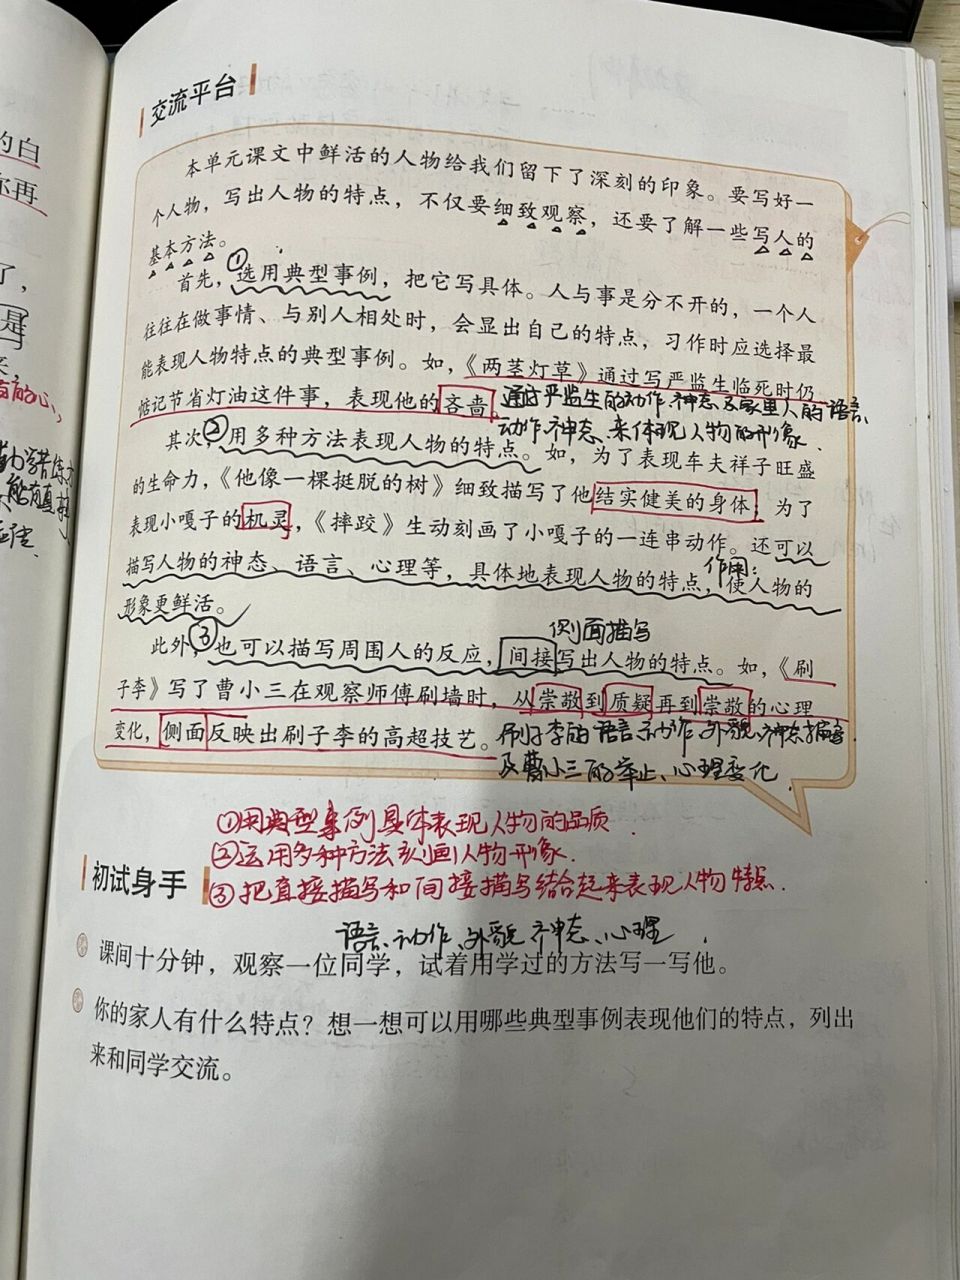 的白
你再
了，
是
交流平台
本单元课文中鲜活的人物给我们留下了深刻的印象。要写好一
个人物，写出人物的特点，不仅要细致观察，还要了解一些写人的
基本方法。
①
首先，选用典型事例，把它写具体。人与事是分不开的，一个人
往往在做事情、与别人相处时，会显出自己的特点，习作时应选择最
能表现人物特点的典型事例。如，《两茎灯草》通过写严监生临死时仍
惦记节省灯油这件事，表现他的吝啬。
通过严监生的动作、神态及家里人的语言、
动作、神态、来体现人物的形象
其次，②用多种方法表现人物的特点。如，为了表现车夫祥子旺盛
的生命力，《他像一棵挺脱的树》细致描写了他结实健美的身体；为了
表现小嘎子的机灵，《摔跤》生动刻画了小嘎子的一连串动作。还可以
作用：
描写人物的神态、语言、心理等，具体地表现人物的特点，使人物的
形象更鲜活。
侧面描写
此外，③也可以描写周围人的反应，间接写出人物的特点。如，《刷
子李》写了曹小三在观察师傅刷墙时，从崇敬到质疑再到崇敬的心理
变化，侧面反映出刷子李的高超技艺。
刷子李的语言、动作、外貌、神态描写
及曹小三的举止、心理变化
①用典型事例具体表现人物的品质.
②运用多种方法刻画人物形象.
初试身手
③把直接描写和间接描写结合起来表现人物特点.
语言、动作、外貌、神态、心理
课间十分钟，观察一位同学，试着用学过的方法写一写他。
你的家人有什么特点？想一想可以用哪些典型事例表现他们的特点，列出
来和同学交流。